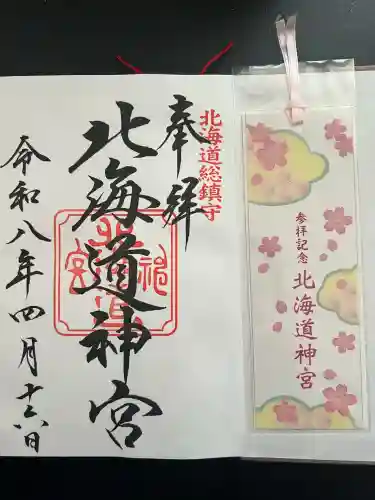 北海道総鎮守
奉拝
北海道神宮
北海道神宮
令和八年四月十六日
参拝記念
北海道神宮